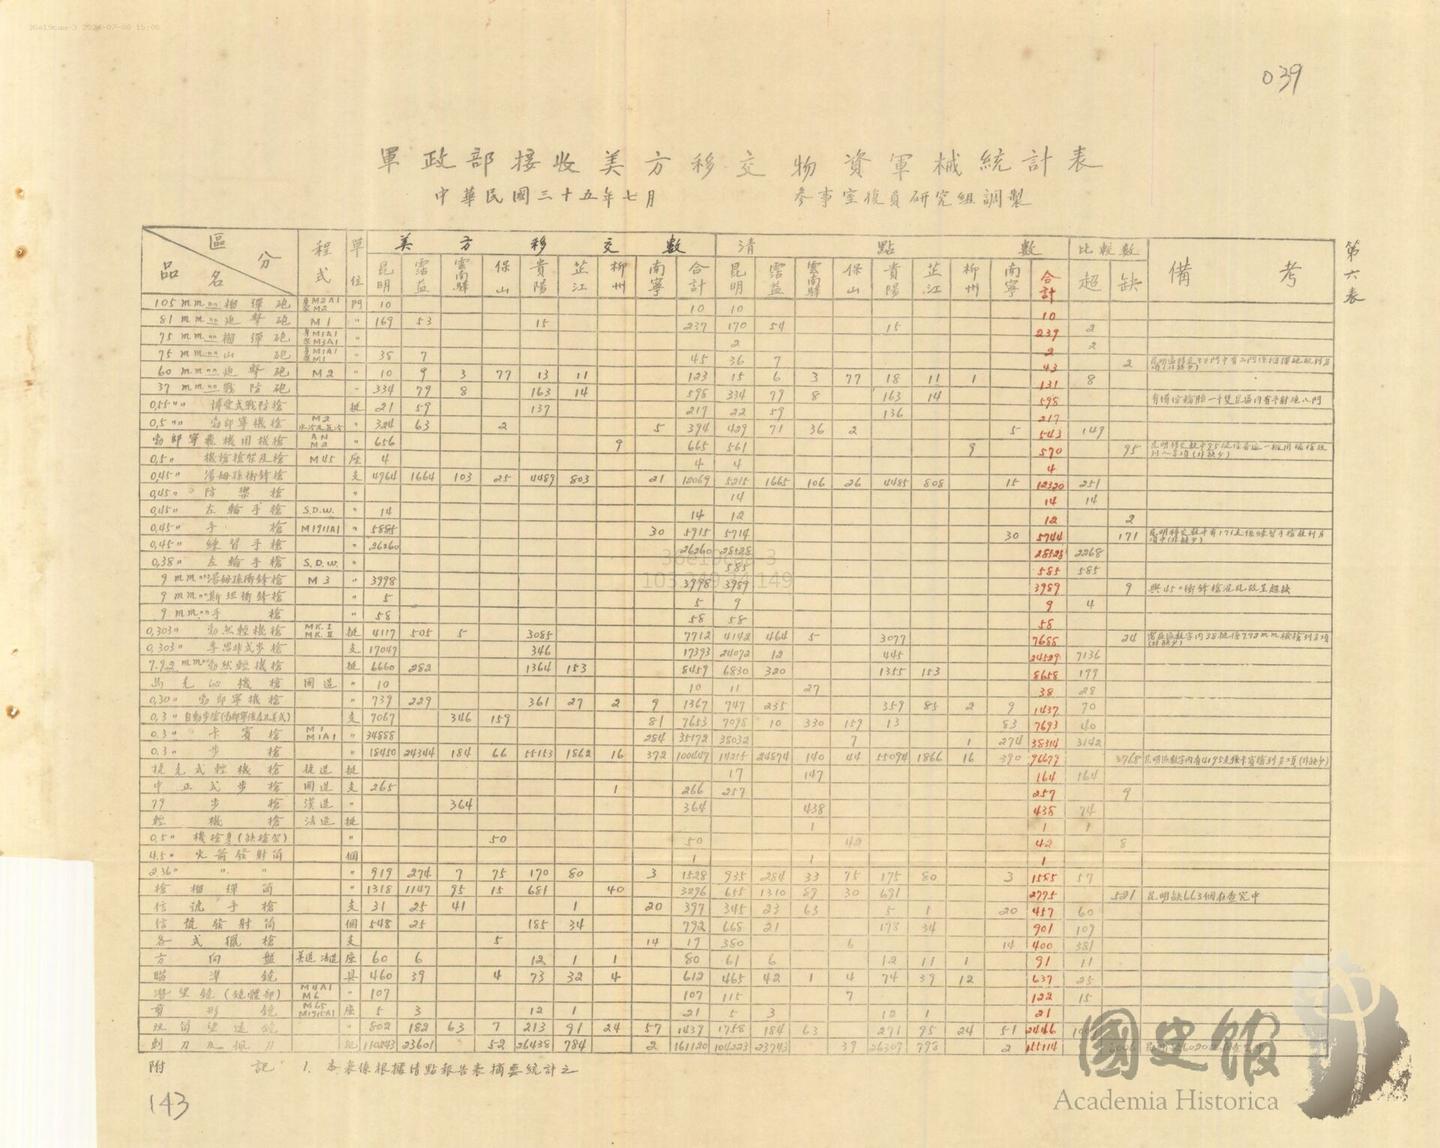 039
軍政部接收美方移交物資軍械統計表
中華民國三十五年七月 參事室復員研究組調製
第六表
區分 品名 程式 單位 美方移交數 清點數 比較數 備考
昆明 霑益 雲南驛 保山 貴陽 芷江 柳州 南寧 合計 昆明 霑益 雲南驛 保山 貴陽 芷江 柳州 南寧 合計 超 缺
105mm 榴彈砲 門 10 10 10 10
81mm 迫擊砲 M1 〃 169 53 15 237 170 54 15 239 2
75mm 榴彈砲 〃 2 2 2
75mm 山砲 〃 38 7 45 36 7 43 2
60mm 迫擊砲 M2 〃 10 9 3 77 13 11 123 15 6 3 77 18 11 1 131 8
37mm 戰防砲 〃 334 79 8 163 14 598 334 79 8 163 14 598
0,55〃 博愛式戰防槍 挺 21 59 137 217 22 59 136 217
0,5〃 勃郎寧機槍 M2 〃 324 63 2 5 394 429 71 36 2 5 543 149
勃郎寧飛機用機槍 AN M2 〃 656 9 665 561 9 570 95
0,5〃 機槍槍架及槍 M45 座 4 4 4 4
0,45〃 湯姆孫衝鋒槍 支 4964 1664 103 25 4489 803 21 12069 5215 1665 106 26 4485 808 15 12320 251
0,45〃 防禦槍 〃 14 14 14
0,45〃 左輪手槍 S.D.W. 〃 14 14 12 12 2
0,45〃 手槍 M1911A1 〃 5885 30 5915 5714 30 5744 171
0,45〃 練習手槍 〃 26260 26260 28528 28528 2268
0,38〃 左輪手槍 S.D.W. 〃 585 585 585
9mm 湯姆孫衝鋒槍 M3 〃 3998 3998 3989 3989 9 與45〃衝鋒槍混合故呈超缺
9mm 斯坦衝鋒槍 〃 5 5 9 9 4
9mm 手槍 〃 58 58 58 58
0,303〃 勃然輕機槍 MK.I MK.II 挺 4117 505 5 3085 7712 4142 464 5 3077 7688 24
0,303〃 李恩非式步槍 支 17047 346 17393 24072 12 445 24529 7136
7.92mm 勃然輕機槍 挺 6660 282 1364 153 8459 6830 320 1355 153 8658 199
馬克沁機槍 國造 〃 10 10 11 27 38 28
0,30〃 勃郎寧機槍 〃 739 229 361 27 2 9 1367 747 235 359 85 2 9 1437 70
0,3〃 自動步槍 支 7067 346 159 81 7653 7098 10 330 159 13 83 7693 40
0.3〃 卡賓槍 M1 M1A1 〃 34888 284 35172 38032 7 1 274 38314 3142
0.3〃 步槍 〃 18450 24344 184 66 55153 1862 16 372 100447 14215 24874 140 44 55094 1866 16 390 96679 3768
捷克式輕機槍 捷造 挺 17 147 164 164
中正式步槍 國造 支 265 1 266 257 257 9
79步槍 漢造 〃 364 364 438 438 74
輕機槍 法造 挺 1 1 1
0,5〃 機槍身(缺槍架) 〃 50 50 42 42 8
4.5〃 火箭發射筒 個 1 1 1
2.36〃 〃 〃 〃 919 274 7 75 170 80 3 1528 935 284 33 75 175 80 3 1585 57
槍榴彈筒 〃 1318 1147 95 15 681 40 3296 655 1310 89 30 691 2775 521 昆明缺663個在查究中
信號手槍 支 31 25 41 1 20 397 345 23 63 5 1 20 457 60
信號發射筒 個 548 25 185 34 792 668 21 178 34 901 109
各式獵槍 支 5 14 19 380 6 14 400 381
方向盤 美造 法造 座 60 6 12 1 1 80 61 6 12 11 1 91 11
瞄準鏡 具 460 39 4 73 32 4 612 465 42 1 4 74 39 12 637 25
潛望鏡(鏡體部) M4A1 M6 〃 107 107 115 7 122 15
剪形鏡 M65 M1915A1 座 5 3 12 1 21 5 3 12 1 21
雙筒望遠鏡 〃 802 182 63 7 213 91 24 57 1439 1758 184 63 271 95 24 51 2446
刺刀及佩刀 把 110243 23601 52 26438 784 2 161120 104223 23743 39 26309 798 2 155114
附記 1. 本表係根據清點報告表摘要統計之
143
國史館
Academia Historica